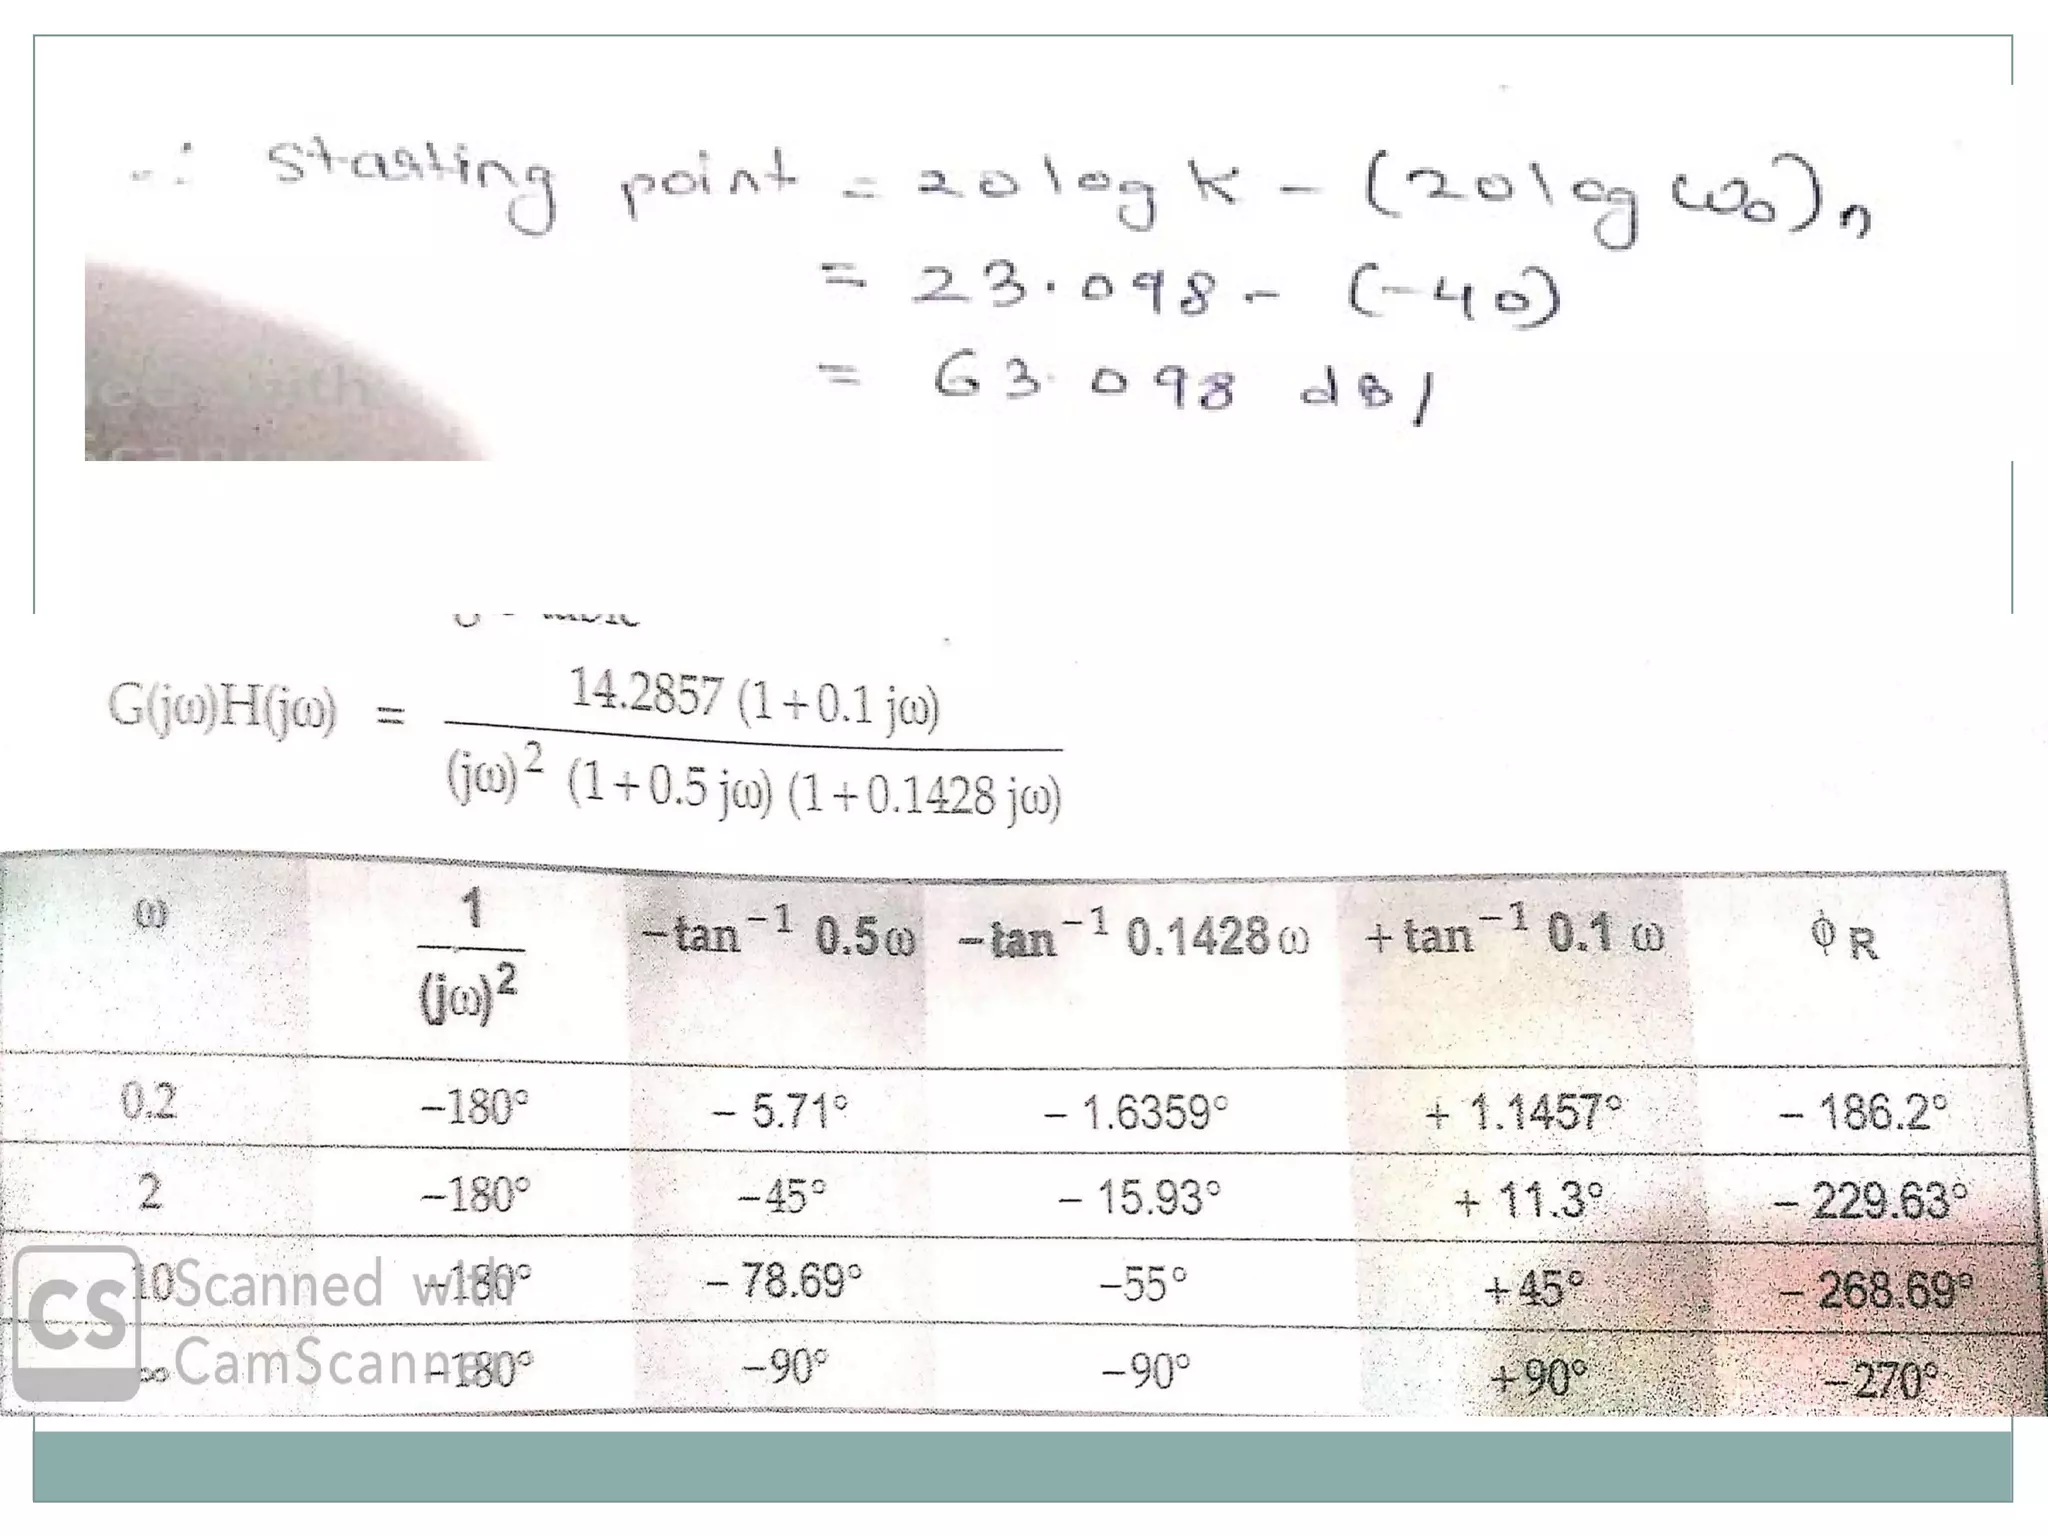 ∴ starting point = 20 log K - (20 log ω₀)n
= 23.098 - (-40)
= 63.098 dB/
G(jω)H(jω) = 14.2857 (1+0.1 jω) / (jω)² (1+0.5 jω) (1+0.1428 jω)
ω 1/(jω)² −tan⁻¹ 0.5ω −tan⁻¹ 0.1428ω +tan⁻¹ 0.1 ω ϕR
0.2 −180° − 5.71° − 1.6359° + 1.1457° − 186.2°
2 −180° −45° − 15.93° + 11.3° − 229.63°
10 −180° − 78.69° −55° +45° − 268.69°
∞ −180° −90° −90° +90° −270°
CS Scanned with
CamScanner